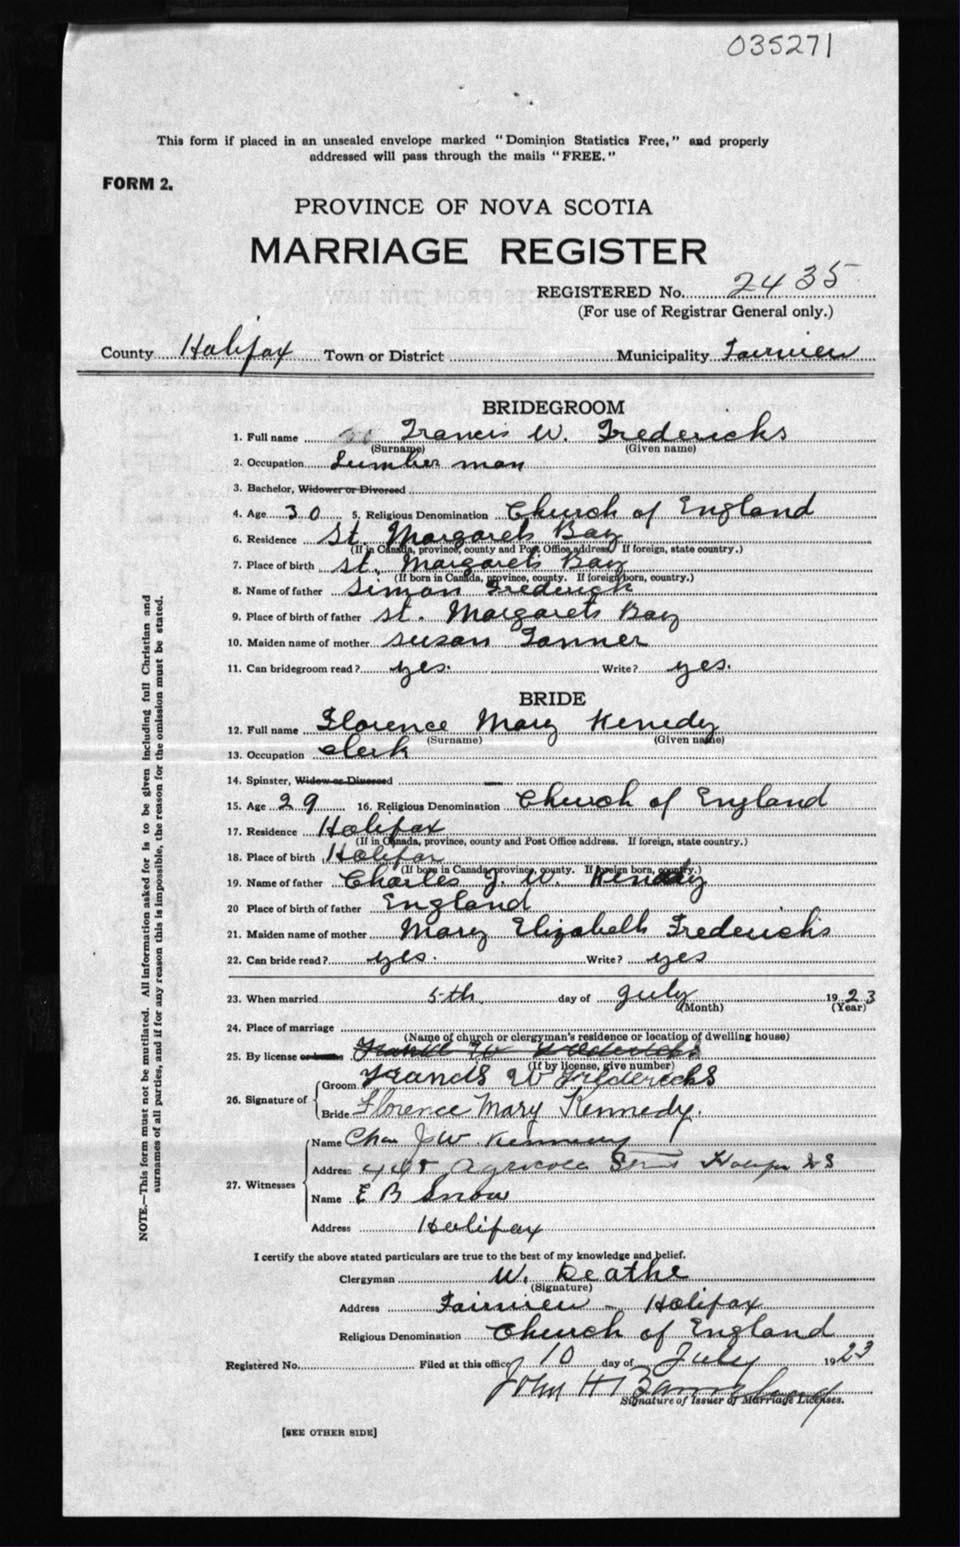 035271
This form if placed in an unsealed envelope marked "Dominion Statistics Free," and properly
addressed will pass through the mails "FREE."
FORM 2.
PROVINCE OF NOVA SCOTIA
MARRIAGE REGISTER
REGISTERED No. 2435
(For use of Registrar General only.)
County Halifax Town or District Municipality Fairview
BRIDEGROOM
1. Full name Francis W. Fredericks
(Surname) (Given name)
2. Occupation Lumber man
3. Bachelor, Widower or Divorced
4. Age 30 5. Religious Denomination Church of England
6. Residence St. Margarets Bay
(If in Canada, province, county and Post Office address. If foreign, state country.)
7. Place of birth St. Margarets Bay
(If born in Canada, province, county. If foreign born, country.)
8. Name of father Simon Frederick
9. Place of birth of father St. Margarets Bay
10. Maiden name of mother Susan Tanner
11. Can bridegroom read? yes. Write? yes.
BRIDE
12. Full name Florence Mary Kenedy
(Surname) (Given name)
13. Occupation Clerk
14. Spinster, Widow or Divorced —
15. Age 29 16. Religious Denomination Church of England
17. Residence Halifax
(If in Canada, province, county and Post Office address. If foreign, state country.)
18. Place of birth Halifax
(If born in Canada, province, county. If foreign born, country.)
19. Name of father Charles J. W. Kenedy
20 Place of birth of father England
21. Maiden name of mother Mary Elizabeth Fredericks
22. Can bride read? yes. Write? yes
23. When married 5th. day of July 1923
(Month) (Year)
24. Place of marriage
(Name of church or clergyman's residence or location of dwelling house)
25. By license or banns
(If by license, give number)
26. Signature of Groom Francis W Fredericks
Bride Florence Mary Kennedy.
27. Witnesses Name Chas J W Kennedy
Address Agricola Street Halifax NS
Name E B Snow
Address Halifax
I certify the above stated particulars are true to the best of my knowledge and belief.
Clergyman W.
(Signature)
Address Fairview - Halifax
Religious Denomination Church of England
Registered No. Filed at this office 10 day of July 1923
John H
Signature of Issuer of Marriage Licenses.
[SEE OTHER SIDE]
NOTE.—This form must not be mutilated. All information asked for is to be given including full Christian and
surnames of all parties, and if for any reason this is impossible, the reason for the omission must be stated.